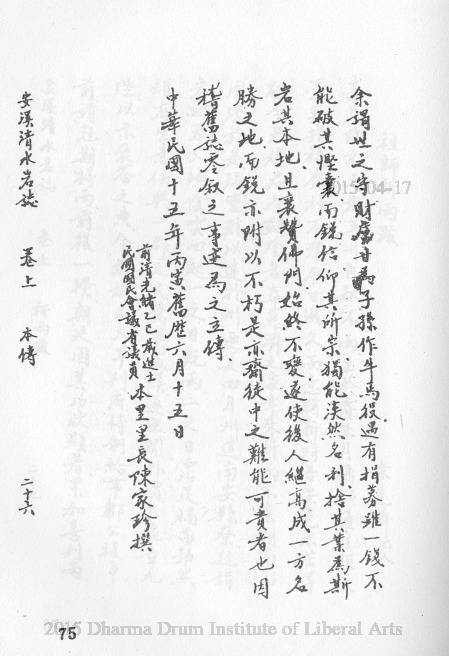 余謂世之守財虜甘爲子孫作牛馬役遇有捐募雖一錢不
能破其堅囊而銳信仰其所宗獨能淡然名利捨其業爲斯
岩其本地且襄贊佛門始終不變遂使後人繼高成一方名
勝之地而銳亦附以不朽是亦齋徒中之難能可貴者也因
稽舊誌零敘之事述爲之立傳
中華民國十五年丙寅舊歷六月十五日
前清光緒乙巳歲進士
民國國民會議省議員
本里里長陳家珍撰
安溪清水岩誌 卷上 本傳 二十六
75
2015-04-17
2015 Dharma Drum Institute of Liberal Arts